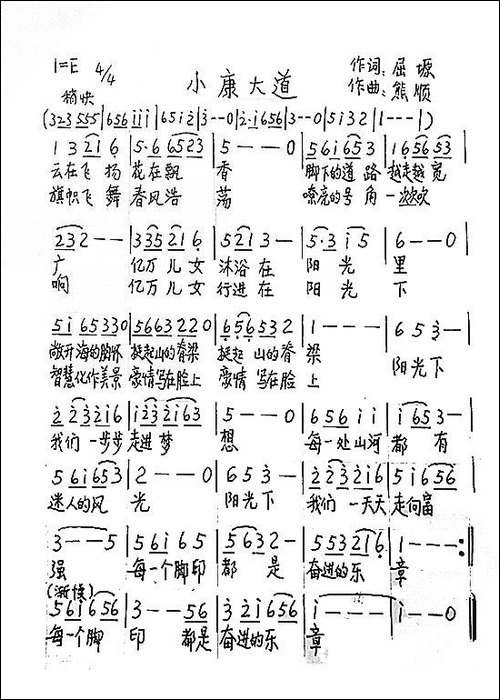 1=E 4/4
小康大道
作词:屈塬
作曲:熊顺
稍快
(323 555|656 i i i|6 5 i 2|3--0|2·i 656|3--0|5 i 3 2|1---|)
1 3 2 i 6|5·6 6523|5--0|5 6 i 653|i 6 5653|
云在飞扬 花在飘 香 脚下的道路 越走越宽
旗帜飞舞 春风浩荡 嘹亮的号角 一次次吹
232--|335 2 i 6|5 2 i 3-|5·3 i 5|6--0|
广 亿万儿女 沐浴在 阳光 里
响 亿万儿女 行进在 阳光 下
5 i 65330|56632220|6 5 6532|1---|6 5 3-|
敞开海的胸怀 挺起山的脊梁 挺起 山的脊 梁 阳光下
智慧化作美景 豪情写在脸上 豪情 写在脸 上
2 2 3 2 i 6|i 2 3 2 i 6 3|5--0|6 5 6 i i|i 6 5 3-|
我们 一步步 走进 梦 想 每一处山河 都有
5 6 i 653|2--0|6 5 3-|2 2 3 2 i 6|5 i 6 56|
迷人的风 光 阳光下 我们 一天天 走向富
3--5|5 6 i 6 5|5 6 3 2-|5 5 3 2 i 6|1---:|
强 每一个脚印 都是 奋进的乐 章
(渐慢)
5 6 i 6 56|3--56|3 2 i 6 56|i---|i--0|
每一个脚 印 都是 奋进的乐 章